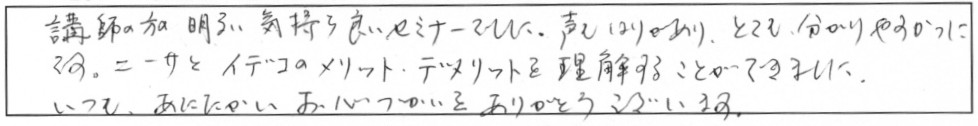 講師の方の明るい気持ち良いセミナーでした。声もはりがあり、とても、分かりやすかった
です。ニーサとイデコのメリット・デメリットを理解することができました。
いつも、あたたかいお心づかいをありがとうございます。